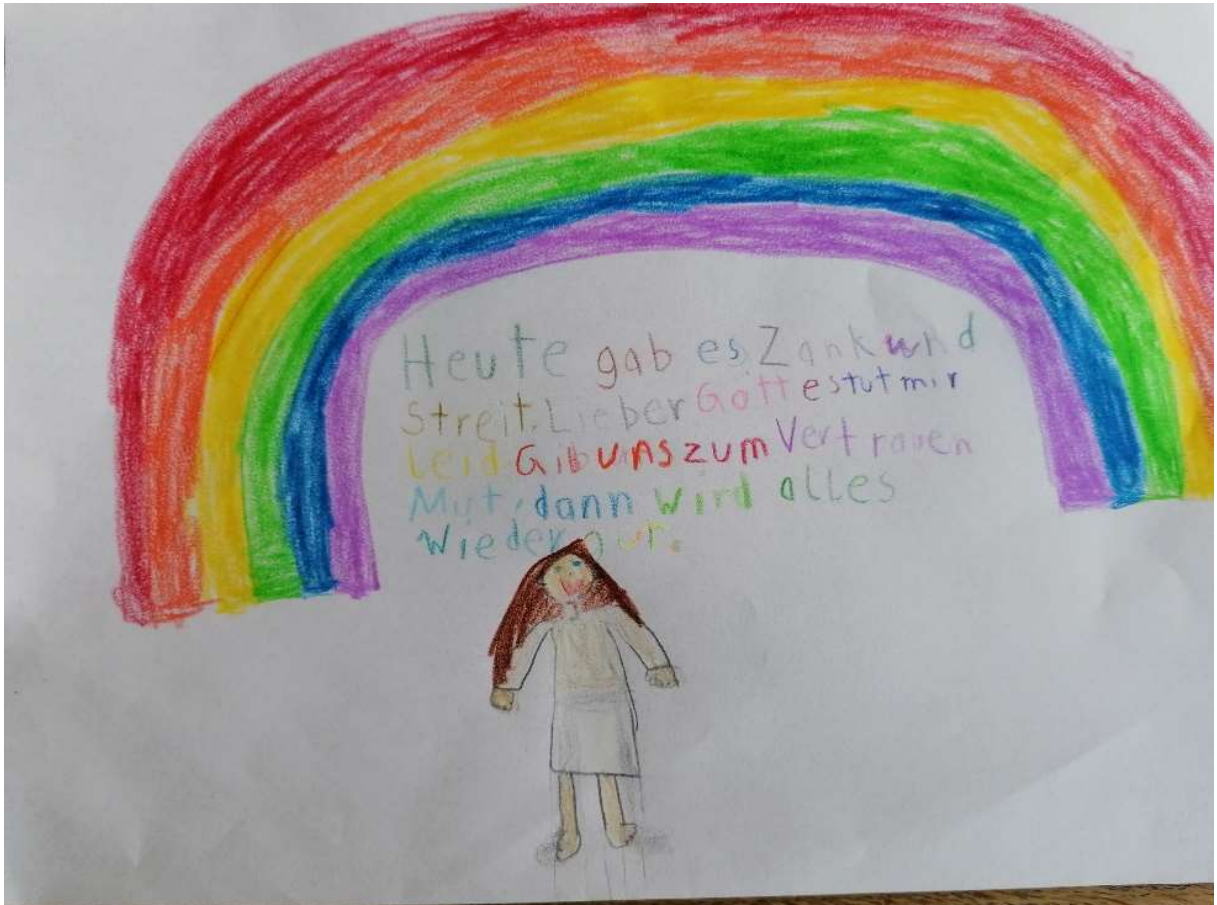 Heute gab es Zank und
Streit. Lieber Gott es tut mir
Leid Gib uns zum Vertrauen
Mut, dann wird alles
Wieder gut.